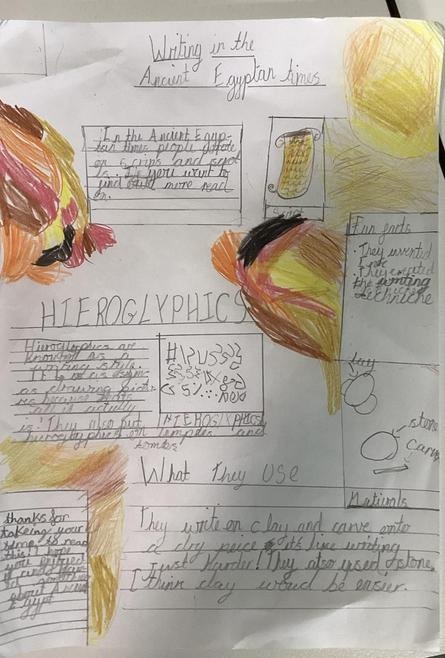 Writing in the
Ancient Egyptan times
In the Ancient Egyp-
tan times people
on and
is. If you want to
find more read
on.
Fun facts
They invented
They created
the writing
techniche
HIEROGLYPHICS
Hieroglyphics are
as a
writing style.
as drawing
because thats
all it actuly
is! They also put
hieroglyphics on temples and
tombs!
HIEROGLYPHICS
What They USE
clay
stone
Carv
Materials
They write on clay and carve onto
a dry peice its like writing
Just Harder! They also used stone,
I think clay would be easier.
thanks for
takeing your
time to read
this! I hope
you enjoyed
about Ancient
Egypt